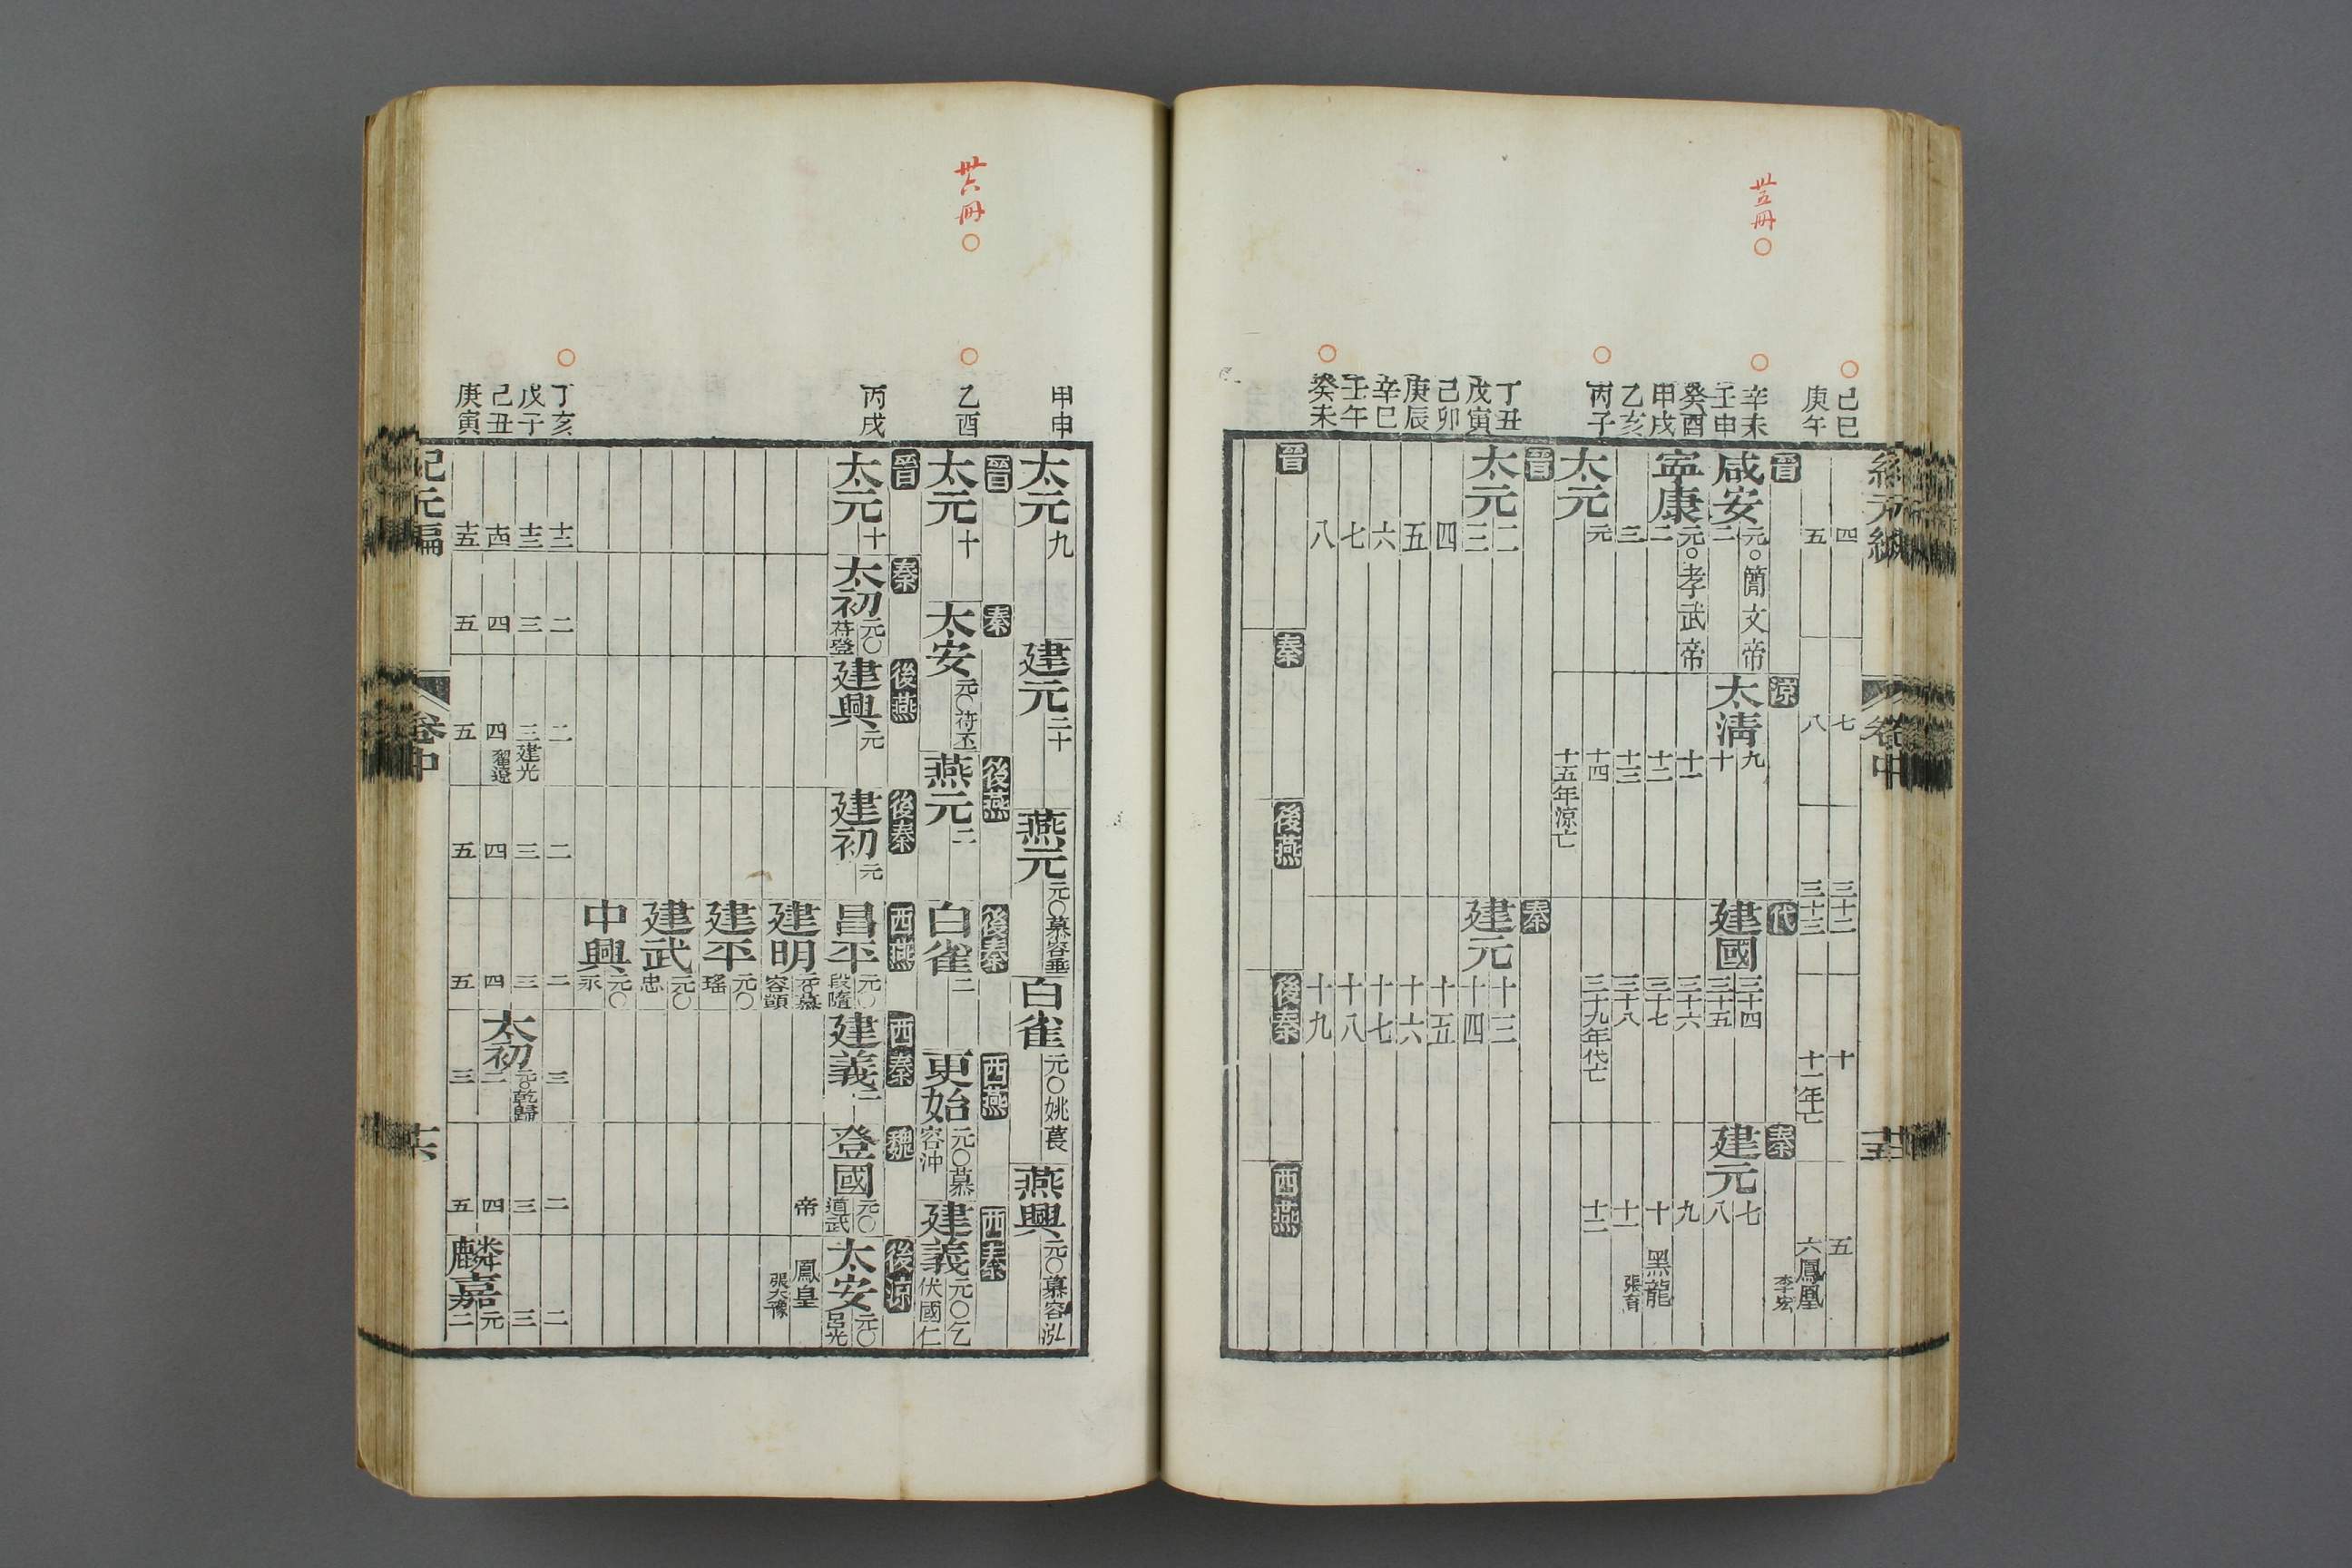 卅五冊
己巳 四 七 三十二 十 五
庚午 五 八 三十三 十一年亡 六 鳳凰 李宏
晉 涼 代 秦
辛未 咸安 元○簡文帝 太清 九 建國 三十四 建元 七
壬申 二 十 三十五 八
癸酉 寧康 元○孝武帝 十一 三十六 九
甲戌 二 十二 三十七 十 黑龍 張育
乙亥 三 十三 三十八 十一
丙子 太元 元 十四 三十九年代亡 十二
十五年涼亡
晉 秦
丁丑 太元 二 建元 十三
戊寅 三 十四
己卯 四 十五
庚辰 五 十六
辛巳 六 十七
壬午 七 十八
癸未 八 十九
晉 秦 後燕 後秦 西燕
卅六冊
甲申 太元 九 建元 二十 燕元 元○慕容垂 白雀 元○姚萇 燕興 元○慕容泓
晉 秦 後燕 後秦 西燕 西秦
乙酉 太元 十 太安 元○苻丕 燕元 二 白雀 二 更始 元○慕容沖 建義 元○乞伏國仁
晉 秦 後燕 後秦 西燕 西秦 魏 後涼
丙戌 太元 十 太初 元○苻登 建興 元 建初 元 昌平 元○段隨 建義 二 登國 元○道武帝 太安 元○呂光
建明 元○慕容顗 鳳皇 張大豫
建平 元○瑤
建武 元○忠
中興 元○永
丁亥 十二 二 二 二 二 三 二 二
戊子 十三 三 三 建光 翟遼 三 三 太初 元○乾歸 三 三
己丑 十四 四 四 四 四 二 四 麟嘉 元
庚寅 十五 五 五 五 五 三 五 二
紀元編 卷中 十六